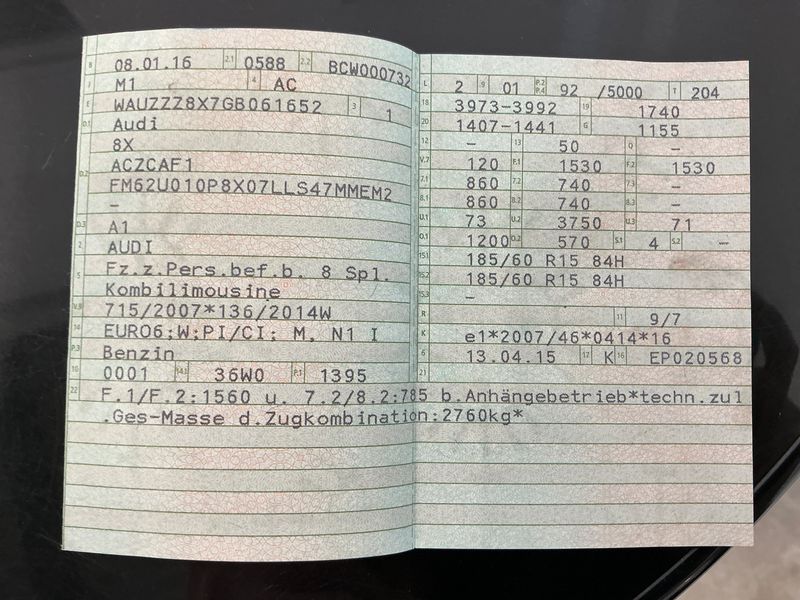 B 08.01.16 2.1 0588 2.2 BCW000732
J M1 4 AC
E WAUZZZ8X7GB061652 3 1
D.1 Audi
8X
D.2 ACZCAF1
FM62U010P8X07LLS47MMEM2
–
D.3 A1
2 AUDI
5 Fz.z.Pers.bef.b. 8 Spl.
Kombilimousine
V.9 715/2007*136/2014W
14 EURO6;W;PI/CI; M, N1 I
P.3 Benzin
10 0001 14.1 36W0 P.1 1395
22 F.1/F.2:1560 u. 7.2/8.2:785 b.Anhängebetrieb*techn.zul
.Ges-Masse d.Zugkombination:2760kg*
L 2 9 01 P.2 P.4 92 /5000 T 204
18 3973-3992 19 1740
20 1407-1441 G 1155
12 – 13 50 Q –
V.7 120 F.1 1530 F.2 1530
7.1 860 7.2 740 7.3 –
8.1 860 8.2 740 8.3 –
U.1 73 U.2 3750 U.3 71
O.1 1200 O.2 570 S.1 4 S.2 –
15.1 185/60 R15 84H
15.2 185/60 R15 84H
15.3 –
R 11 9/7
K e1*2007/46*0414*16
6 13.04.15 17 K 16 EP020568
21